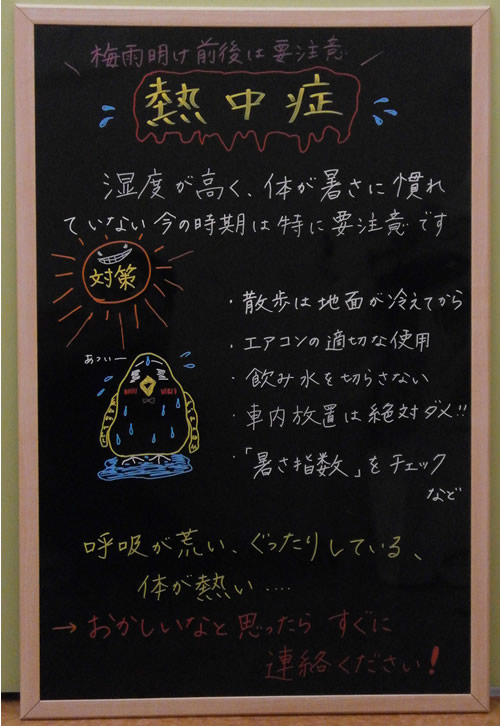 梅雨明け前後は要注意
熱中症
湿度が高く、体が暑さに慣れ
ていない今の時期は特に要注意です
対策
・散歩は地面が冷えてから
・エアコンの適切な使用
あつぃー
・飲み水を切らさない
・車内放置は絶対ダメ!!
・「暑さ指数」をチェック
など
呼吸が荒い、ぐったりしている、
体が熱い....
→おかしいなと思ったら すぐに
連絡ください!